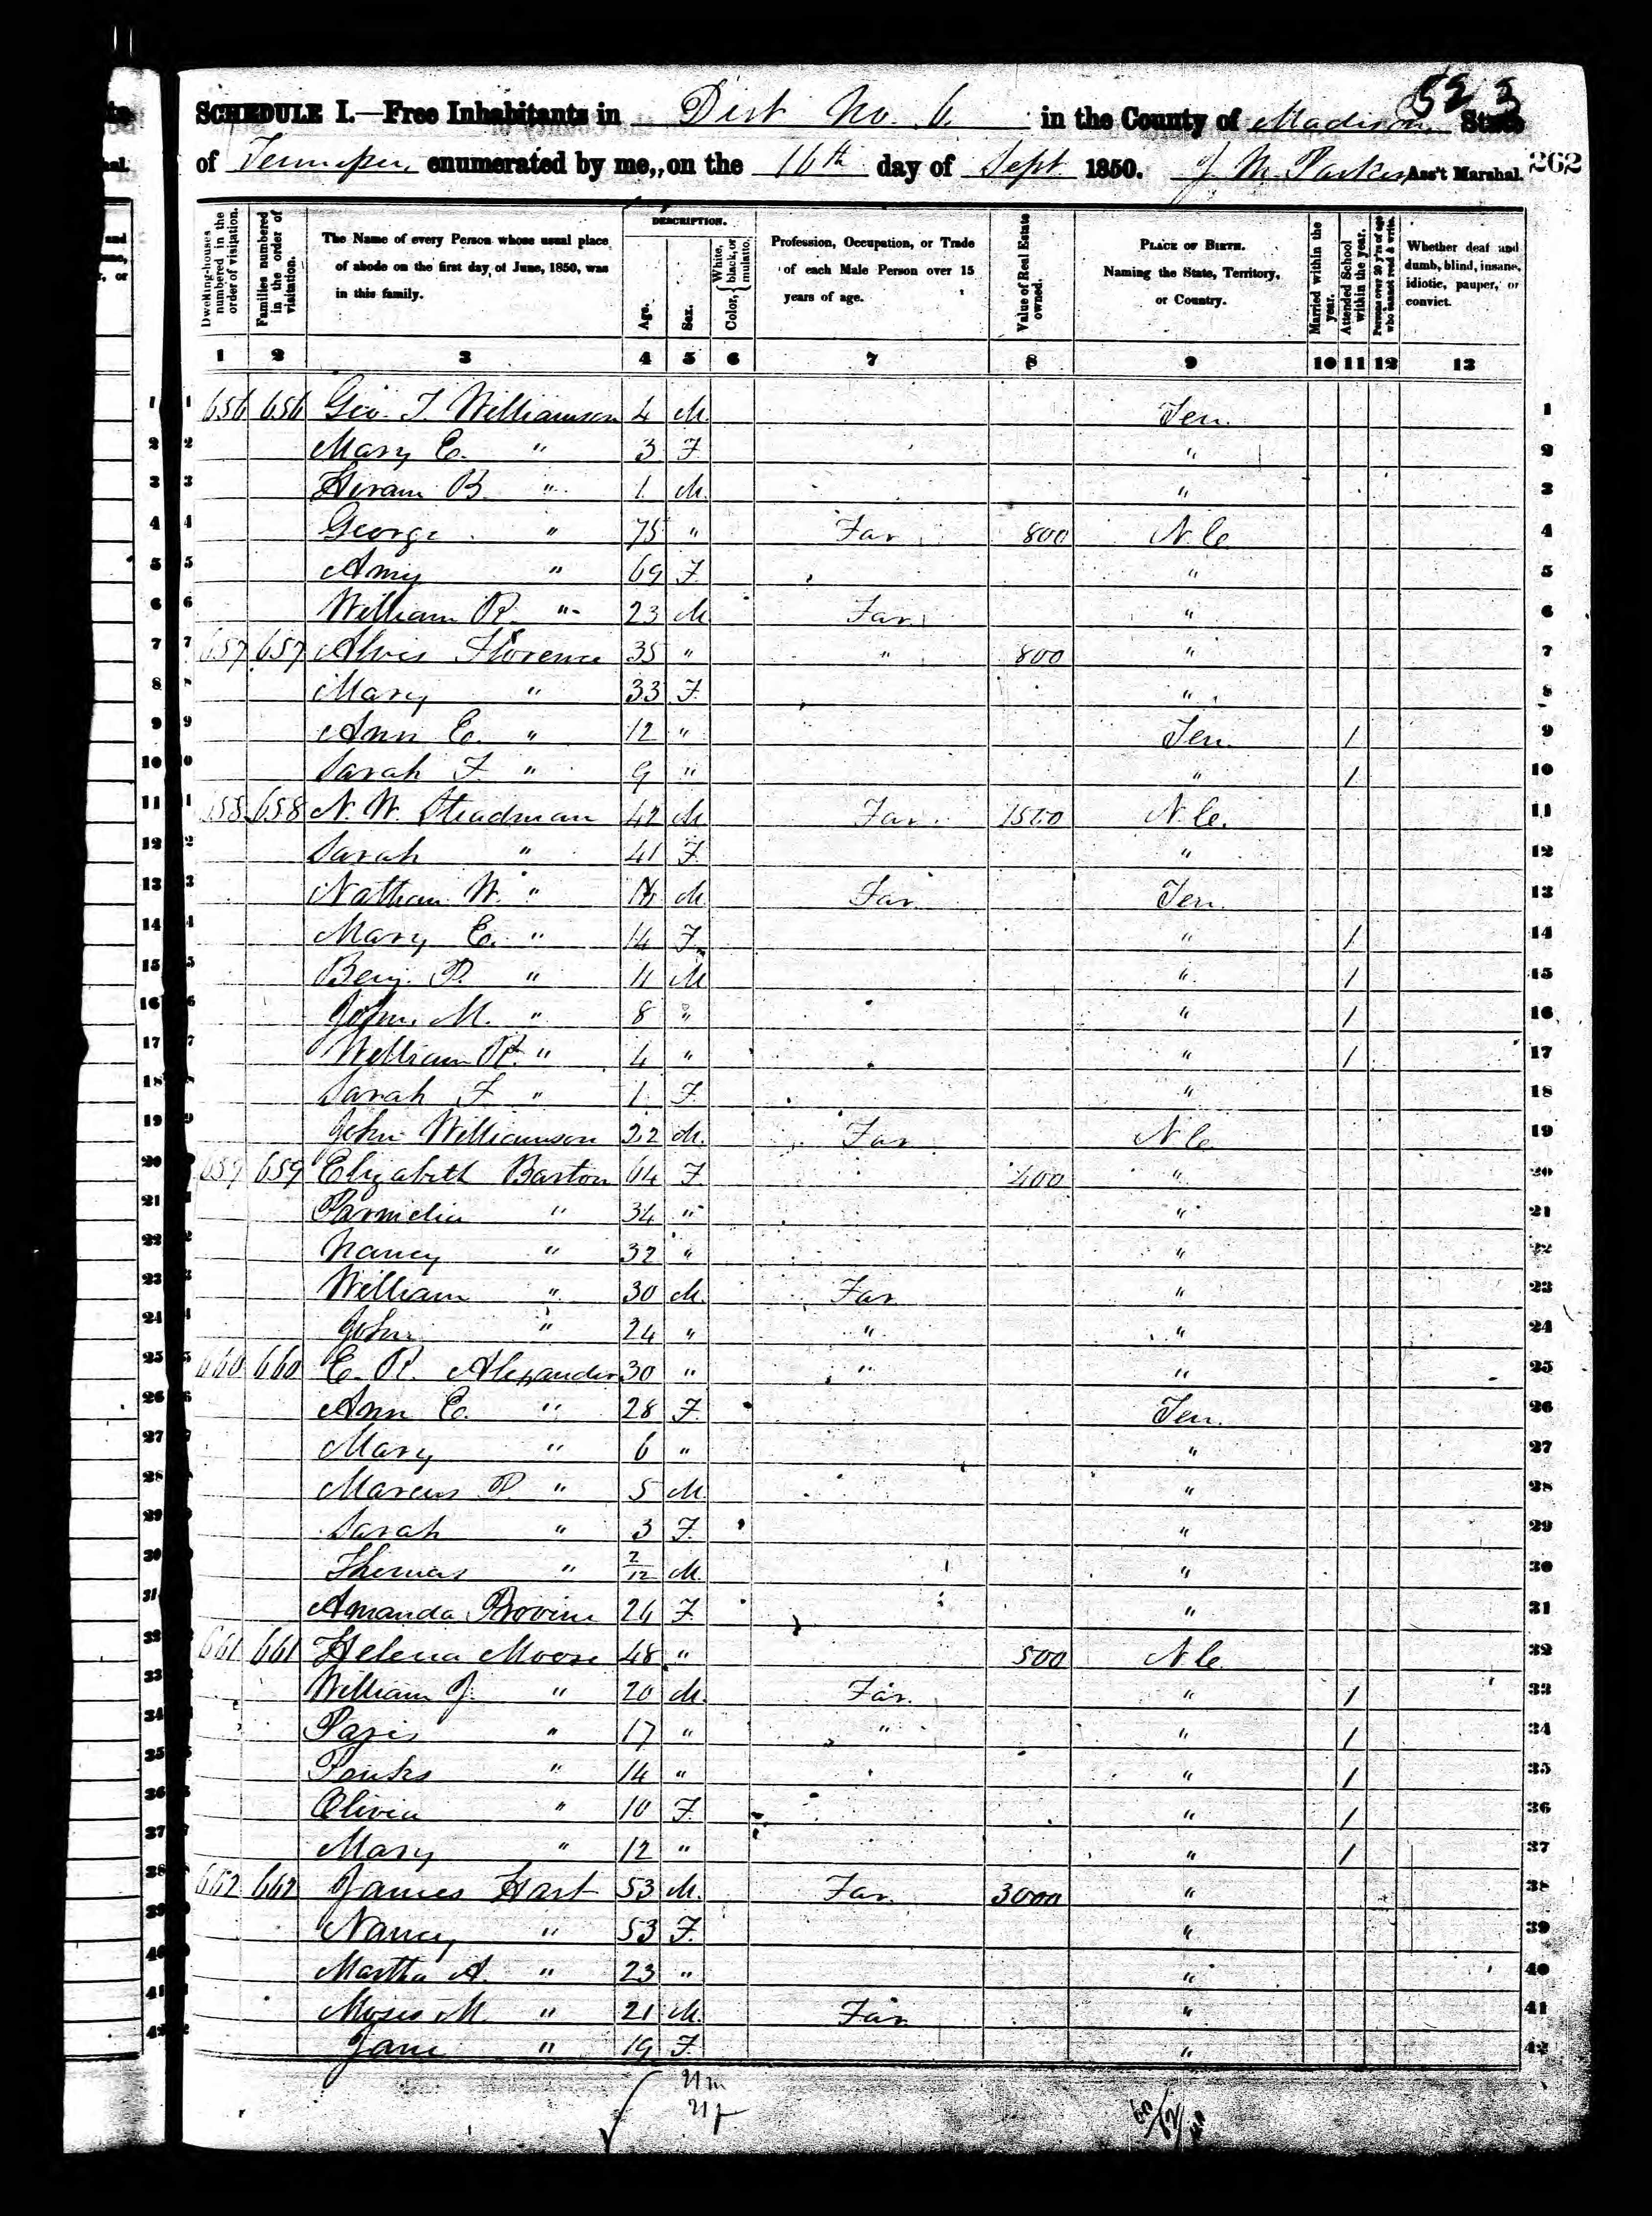 523
SCHEDULE I.—Free Inhabitants in Dist No. 6. in the County of Madison State
of Tennessee, enumerated by me, on the 16th day of Sept 1850. J. M. Parker Ass't Marshal. 262
Dwelling-houses numbered in the order of visitation.
Families numbered in the order of visitation.
The Name of every Person whose usual place of abode on the first day of June, 1850, was in this family.
DESCRIPTION.
Age.
Sex.
Color, { White, black, or mulatto.
Profession, Occupation, or Trade of each Male Person over 15 years of age.
Value of Real Estate owned.
PLACE OF BIRTH. Naming the State, Territory, or Country.
Married within the year.
Attended School within the year.
Persons over 20 y'rs of age who cannot read & write.
Whether deaf and dumb, blind, insane, idiotic, pauper, or convict.
1 2 3 4 5 6 7 8 9 10 11 12 13
1 656 656 Geo. T. Williamson 4 M. Ten. 1
2 Mary E. " 3 F. " 2
3 Hiram B. " 1 M. " 3
4 George " 75 " Far. 800 N. C. 4
5 Amy " 69 F. " 5
6 William R. " 23 M Far. " 6
7 657 657 Alvis Florence 35 " " 800 " 7
8 Mary " 33 F. " 8
9 Ann E. " 12 " Ten. / 9
10 Sarah F. " 9 " " / 10
11 658 658 N. W. Steadman 42 M Far. 1500 N. C. 11
12 Sarah " 41 F. " 12
13 Nathan W. " M. Far. Ten. 13
14 Mary E. " 14 F. " / 14
15 Benj. P. " 11 M " / 15
16 John M. " 8 " " / 16
17 William R. " 4 " " / 17
18 Sarah F. " 1 F " 18
19 John Williamson 22 M. Far N C. 19
20 659 659 Elizabeth Barton 64 F. 400 " 20
21 Parmelia " 34 " " 21
22 Nancy " 32 " " 22
23 William " 30 M. Far " 23
24 John " 24 " " " 24
25 660 660 E. R. Alexander 30 " " " 25
26 Ann E. " 28 F. Ten. 26
27 Mary " 6 " " 27
28 Marcus P. " 5 M. " 28
29 Sarah " 3 F. " 29
30 Thomas " 2/12 M. " 30
31 Amanda Provine 26 F. " 31
32 661 661 Helena Moore 48 " 500 N C. 32
33 William J. " 20 M. Far. " / 33
34 Paris " 17 " " " / 34
35 " 14 " " / 35
36 Olivia " 10 F. " / 36
37 Mary " 12 " " / 37
38 662 662 James Hart 53 M. Far. 3000 " 38
39 Nancy " 53 F. " 39
40 Martha A. " 23 " " 40
41 Moses M. " 21 M. Far. " 41
42 Jane " 19 F. " 42
21 m
21 f